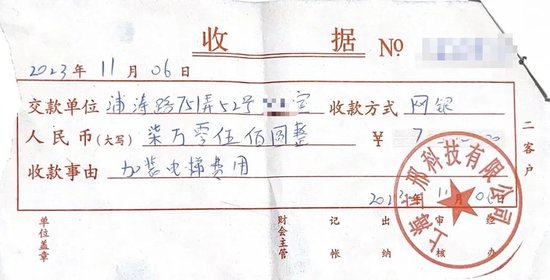 收 据 No
2023 年 11 月 06 日
交款单位 浦涛路751弄52号 室 收款方式 网银
人民币(大写) 柒万零伍佰圆整 ¥ 7
收款事由 加装电梯费用
2023年 11月 06日
上海 那科技有限公司
二客户
单位盖章 财会主管 记帐 出纳 审核 经办